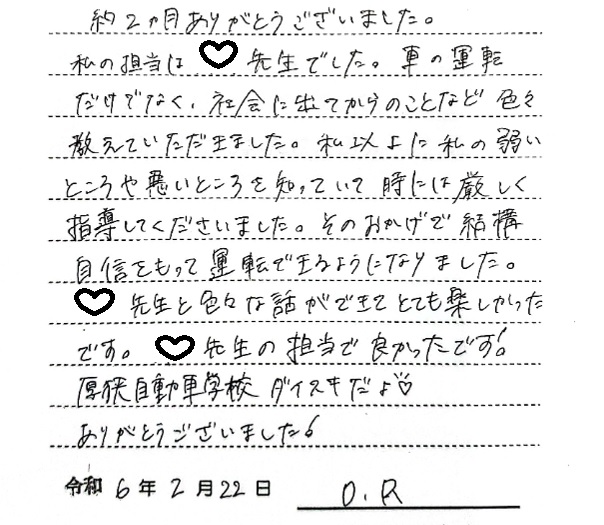 約2ヵ月ありがとうございました。
私の担当は♡先生でした。車の運転
だけでなく、社会に出てからのことなど色々
教えていただきました。私以上に私の弱い
ところや悪いところを知っていて時には厳しく
指導してくださいました。そのおかげで結構
自信をもって運転できるようになりました。
♡先生と色々な話ができてとても楽しかった
です。♡先生の担当で良かったです!
厚狭自動車学校ダイスキだよ♡
ありがとうございました!
令和6年2月22日 O.R